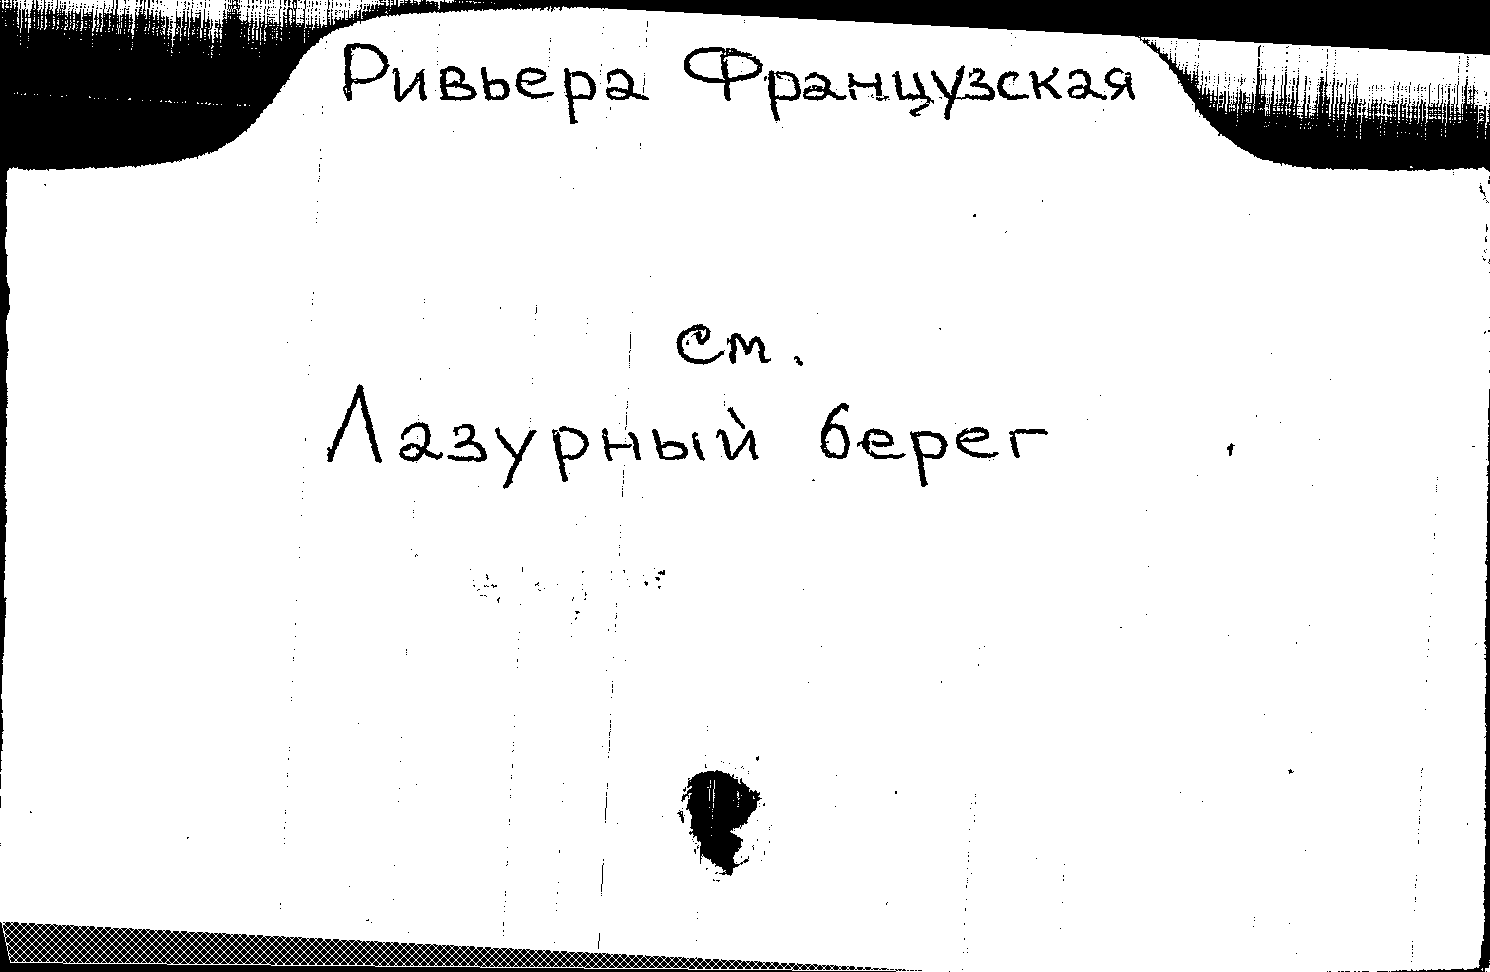 Ривьера Французская
см.
Лазурный берег